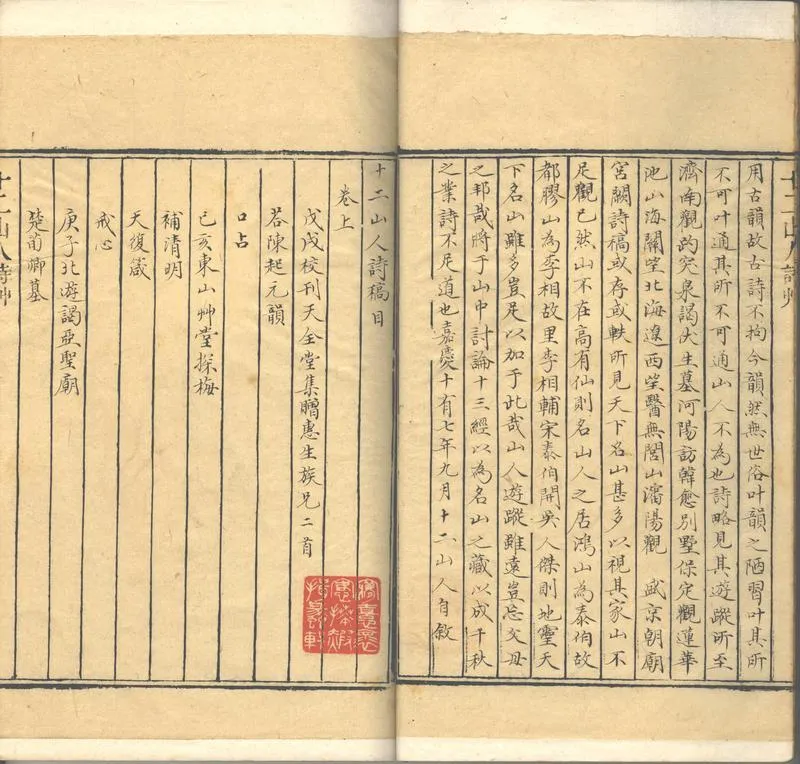 用古韻故古詩不拘今韻然無世俗叶韻之陋習叶其所
不可叶通其所不可通山人不為也詩略見其遊蹤所至
濟南觀趵突泉謁伏生墓河陽訪韓愈別墅保定觀蓮華
池山海關望北海遼西望醫無閭山瀋陽觀 盛京朝廟
宮闕詩稿或存或軼所見天下名山甚多以視其家山不
足觀已然山不在高有仙則名山人之居鴻山為泰伯故
都膠山為李相故里李相輔宋泰伯開吳人傑則地靈天
下名山雖多豈足以加于此哉山人遊蹤雖遠豈忘父母
之邦哉將于山中討論十三經以為名山之藏以成千秋
之業詩不足道也嘉慶十有七年九月十二山人自敘
十二山人詩稿目
卷上
戊戌校刊天全堂集贈惠生族兄二首
荅陳起元韻
口占
己亥東山艸堂探梅
補清明
天復箴
戒心
庚子北遊謁亞聖廟
楚荀卿墓
十二山人詩艸